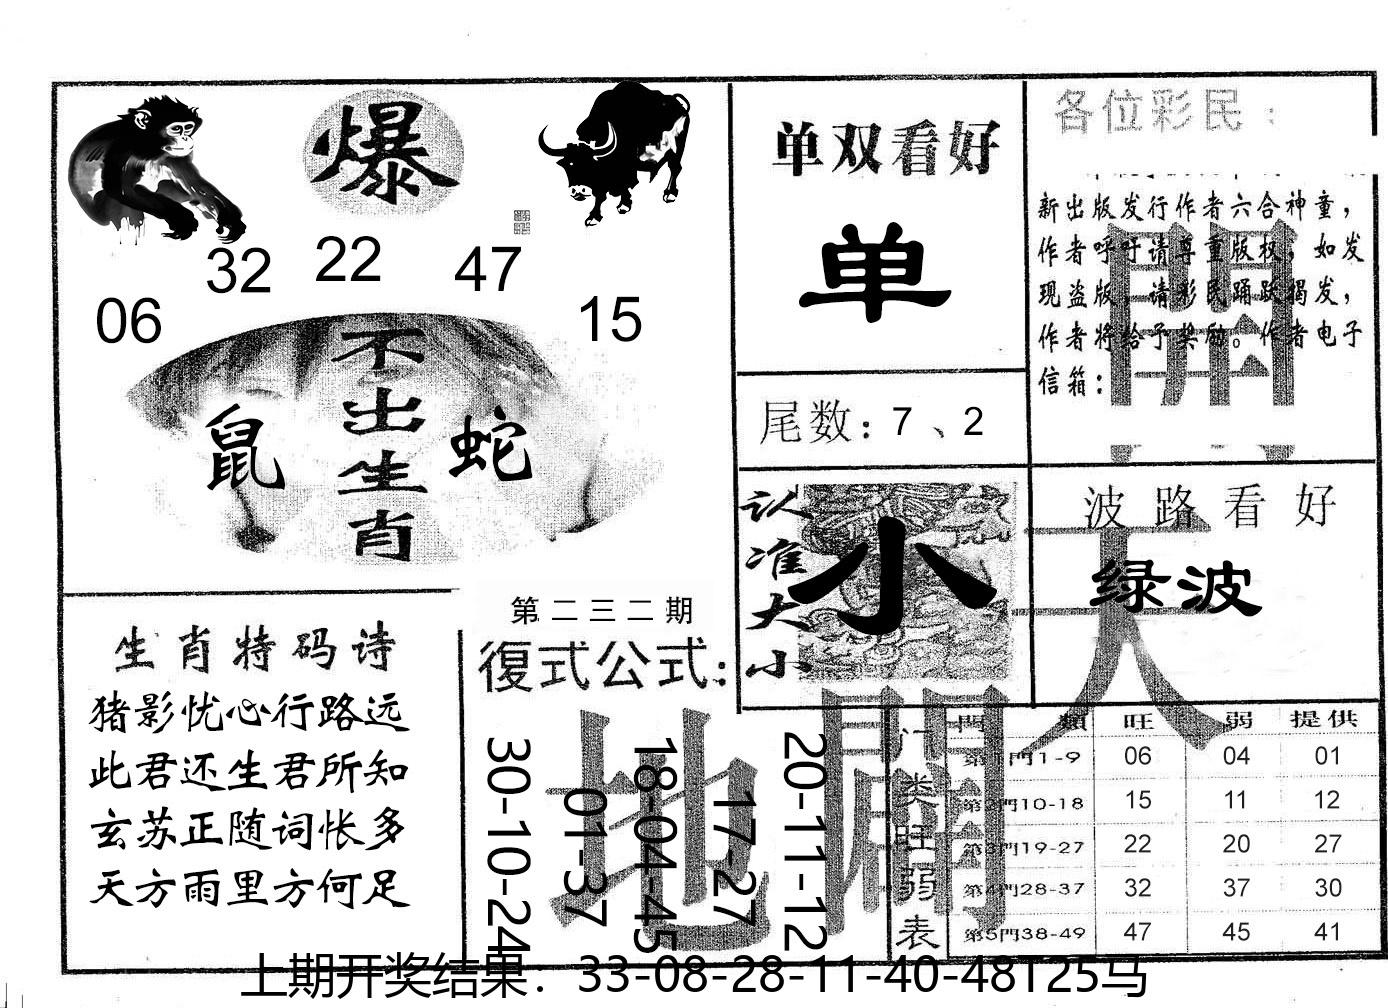 爆
32 22 47
06 15
不出生肖
鼠 蛇
单双看好
单
尾数：7、2
各位彩民：
新出版发行作者六合神童，
作者呼吁请尊重版权，如发
现盗版，请彩民踊跃揭发，
作者将给予奖励。作者电子
信箱：
認准大小
小
波路看好
绿波
天
生肖特码诗
猪影忧心行路远
此君还生君所知
玄苏正随词怅多
天方雨里方何足
第二三二期
復式公式：
30-10-24
01-37
18-04-45
17-27
20-11-12
地
門类旺弱表
門類 旺 弱 提供
第1門1-9 06 04 01
第2門10-18 15 11 12
第3門19-27 22 20 27
第4門28-37 32 37 30
第5門38-49 47 45 41
上期开奖结果：33-08-28-11-40-48T25马